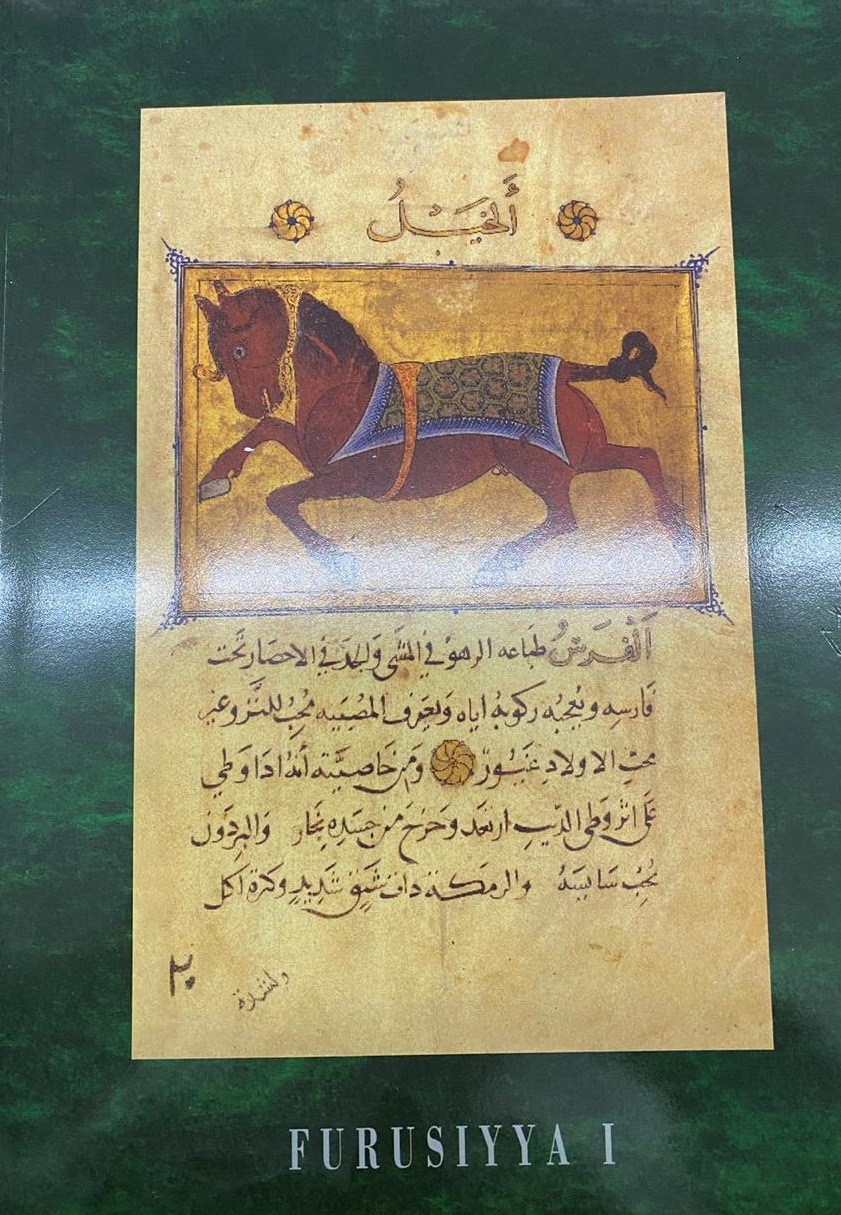 أَلْخَيْلُ
اَلْفَرَسُ طباعه الزهو في المشى والجد في الاحضار تحت
فارسه ويعجبه ركوبه اياه ويعرف المصيبه محب للنزو غير
محب الاولاد غيور ومن خاصيته أنه اذا وطي
على اثر وطى الذيب ارتعد وخرج من جسده بخار والبرذون
يحب سايسه والرمكة ذات شبق شديد وكثرة اكل
٢٠
ولشدة
FURUSIYYA I